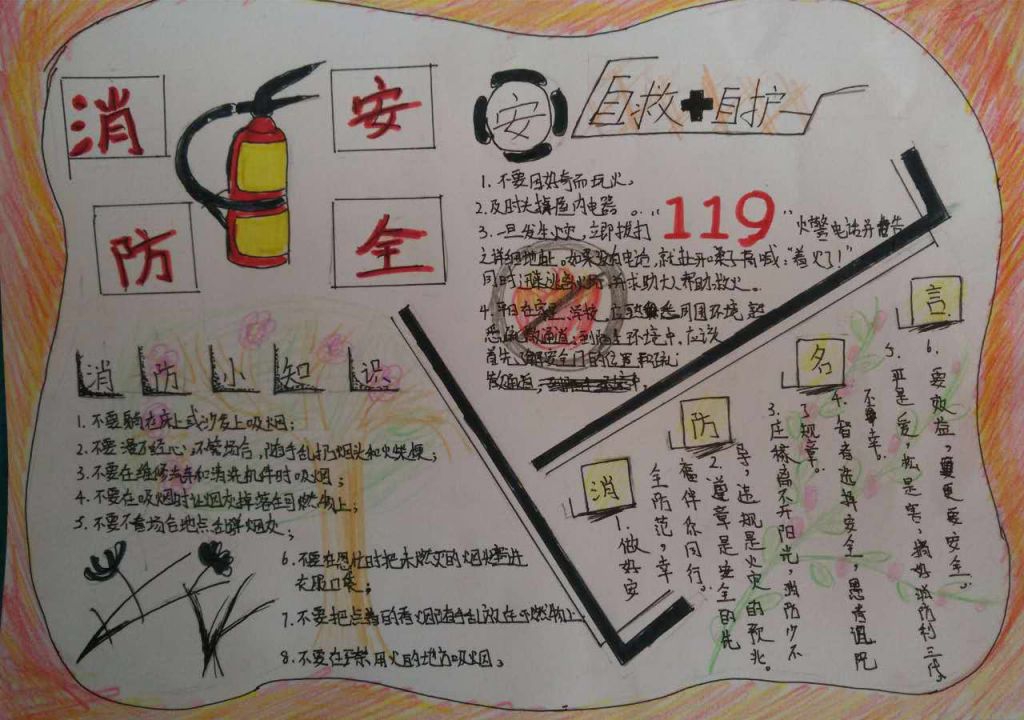 消 安
防 全
安
自救+自护
1.不要因好奇而玩火。
2.及时关掉屋内电器。
3.一旦发生火灾,立即拨打“119”火警电话并报告
之详细地址。如果没有电话,就 喊:“着火了!”
同时 求助大人帮助救火。
4.平日在家里、学校 周围环境
疏散通道;到陌生环境中,应该
首先了解安全门的位置和疏
散通道,
消防小知识
1.不要躺在床上或沙发上吸烟;
2.不要漫不经心,不管场合,随手乱扔烟头和火柴梗;
3.不要在维修汽车和清洗机件时吸烟;
4.不要在吸烟时让烟灰掉落在可燃物上;
5.不要不看场合地点乱弹烟灰;
6.不要在匆忙时把未熄灭的烟头塞进
衣服口袋;
7.不要把点着的香烟随手乱放在可燃物上;
8.不要在严禁用火的地方吸烟。
消防名言
1.做好安
全防范,幸
福伴你同行。
2.遵章是安全的先
导,违规是火灾的祸兆。
3.庄桥离不开阳光,消防少不
了规章。
4.智者选择安全,愚者诅咒
不幸。
5.严是爱,松是害,搞好消防利三代。
6.要效益,更要安全。